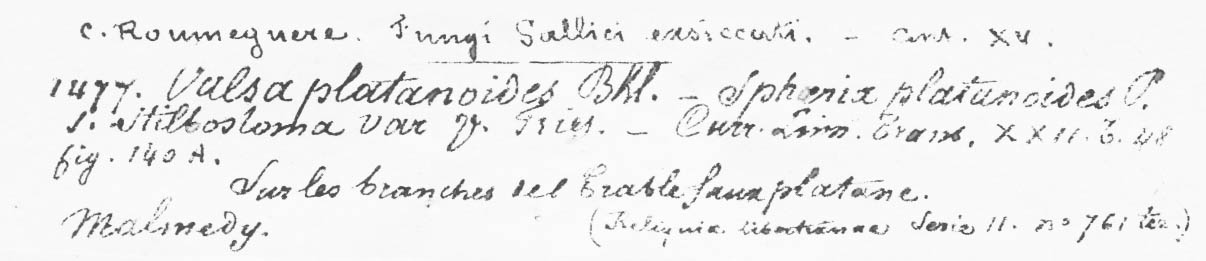 C. Roumeguere. Fungi Gallici exsiccati. - Cent. XV.
1477. Valsa platanoides Bkl. - Sphæria platanoides P.
S. Stilbostoma var γ. Fries. - Curr. Linn. Trans. XXII. t. 48
fig. 140 A.
Sur les branches del Erable faux platane.
Malmedy. (Reliquiæ Libertianae Serie II. no 761 ter.)